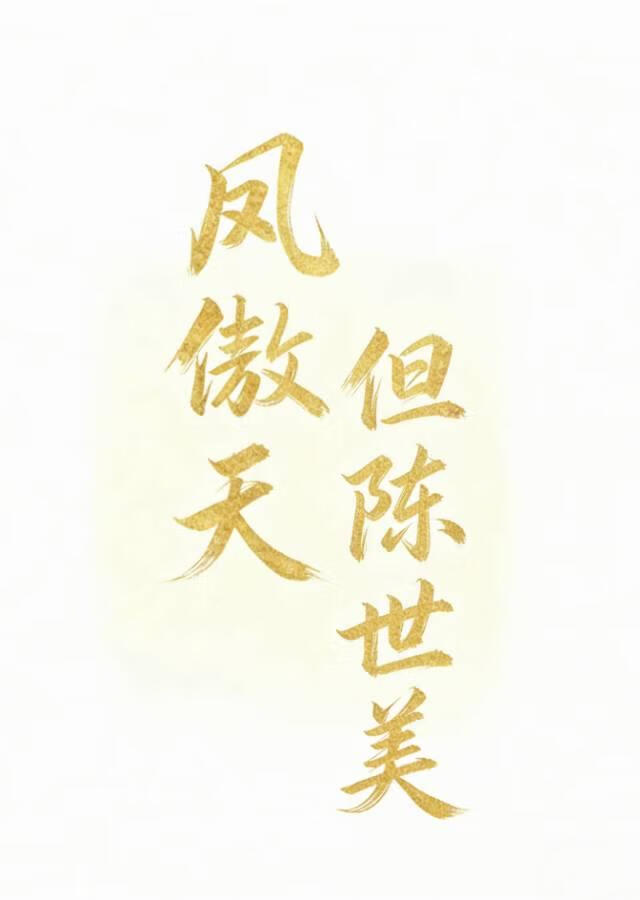 凤傲天
但陈世美